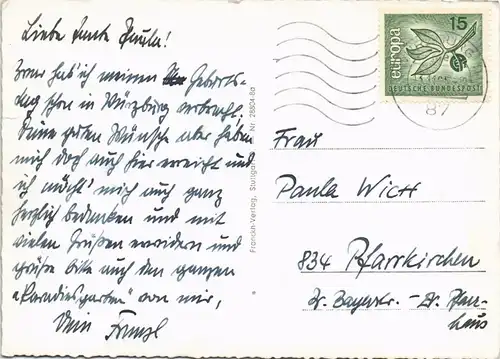 Liebe Tante Paula!
Zwar hab' ich meinen Geburts-
tag schon in Würzburg verbracht.
Deine guten Wünsche aber haben
mich doch auch hier erreicht und
ich möcht' mich auch ganz
herzlich bedanken und mit
vielen Grüßen erwidern und
grüße bitte auch den ganzen
"Paradiesgarten" von mir,
Dein Franzl
Franckh-Verlag, Stuttgart Nr. 2804/80
15
europa
DEUTSCHE BUNDESPOST
87
Frau
Paula Wich
834 Pfarrkirchen
Dr. Bayerstr. - Dr. Pfarr-
haus